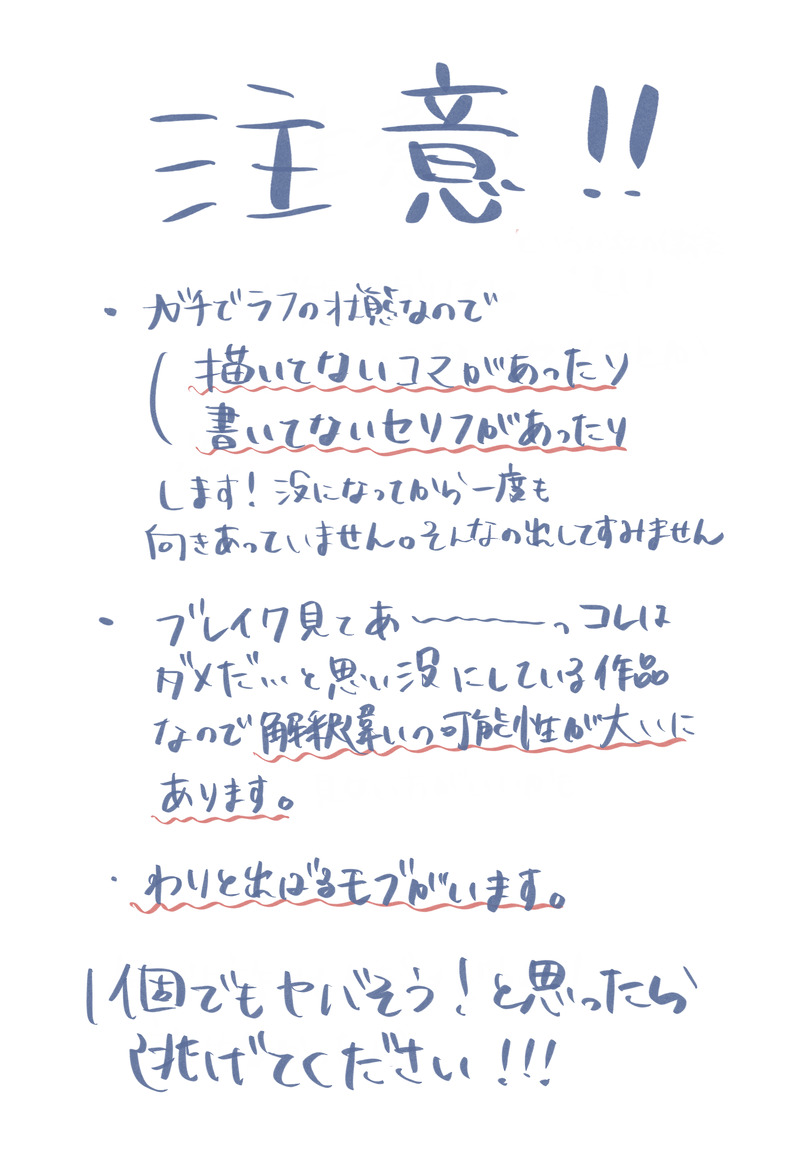 注意!!
・ガチでラフの状態なので
描いてないコマがあったり
書いてないセリフがあったり
します!没になってから一度も
向きあっていません。そんなの出してすみません
・ブレイク見てあ〜〜〜っコレは
ダメだ…と思い没にしている作品
なので解釈違いの可能性が大いに
あります。
・わりと出ばるモブがいます。
1個でもヤバそう!と思ったら
逃げてください!!!